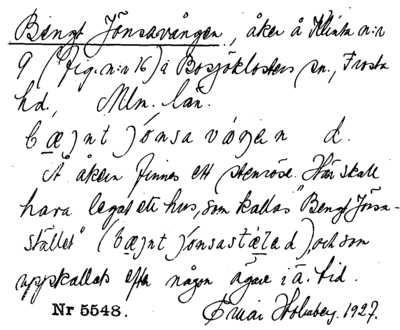 Bengt Jönsavången, åker å Klinta n:r
9 (fig. n:r 16) i Bosjöklosters sn., Frosta
hd., Mlm. län.
bæjnt jönsa vången d.
Å åkern finnes ett stenröse. Här skall
hava legat ett hus, som kallas "Bengt Jönsa-
stället" (bæjnt jönsastæled), och som
uppkallats efter någon ägare i ä. tid.
Nr 5548. Einar Holmberg. 1927.